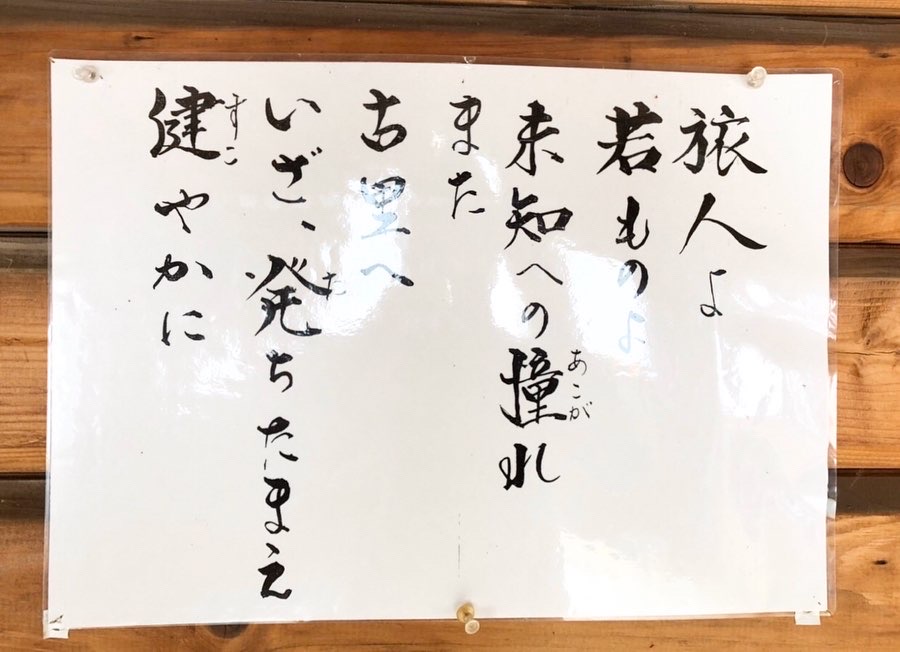 旅人よ
若ものよ
未知への憧れ
あこが
また
古里へ
いざ、発ちたまえ
た
健やかに
すこ